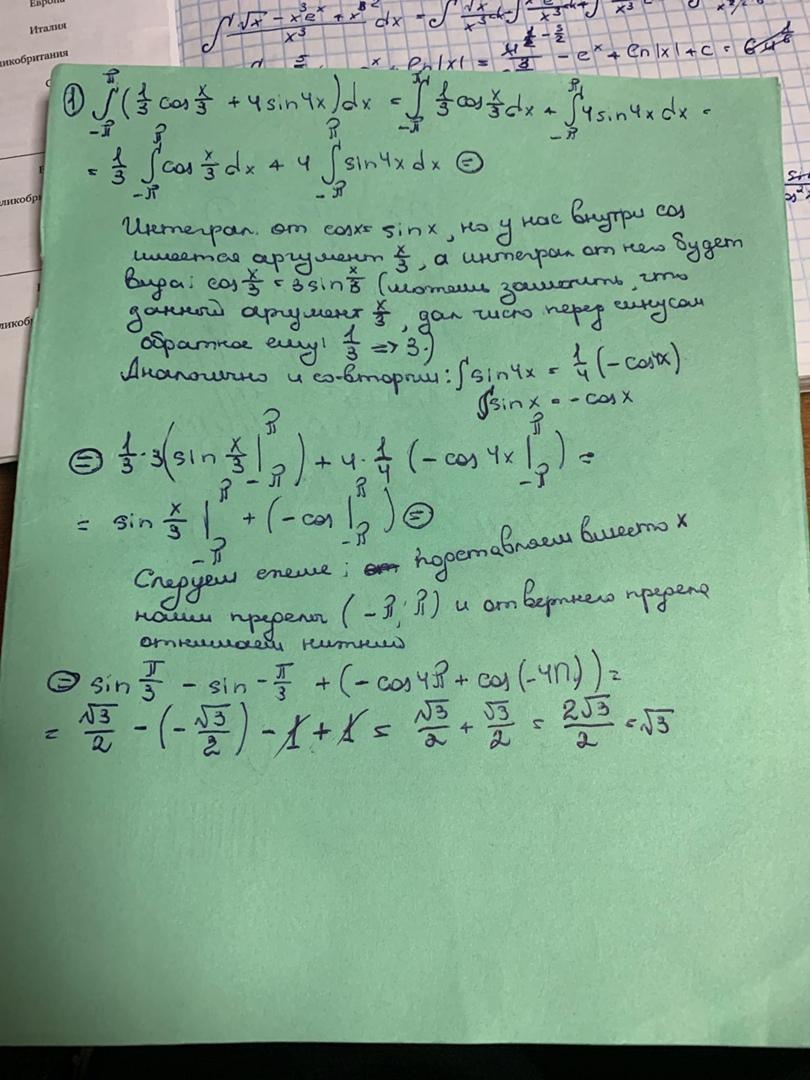 Европа
Италия
ликобритания
∫ (√x − x³eˣ + x²)/x³ dx =
− eˣ + ln|x| + c =
① ∫_{-π}^{π} (1/3 cos x/3 + 4 sin 4x) dx = ∫_{-π}^{π} 1/3 cos x/3 dx + ∫_{-π}^{π} 4 sin 4x dx =
= 1/3 ∫_{-π}^{π} cos x/3 dx + 4 ∫_{-π}^{π} sin 4x dx ⊜
Интеграл от cosx = sin x, но у нас внутри cos
имеется аргумент x/3, а интеграл от него будет
вида: cos x/3 = 3 sin x/3 (можешь заметить, что
данный аргумент x/3, дал число перед синусом
обратное ему! 1/3 => 3.)
Аналогично и со вторым: ∫ sin 4x = 1/4 (−cos4x)
∫ sin x = −cos x
⊜ 1/3 · 3 (sin x/3 |_{-π}^{π}) + 4 · 1/4 (−cos 4x |_{-π}^{π}) =
= sin x/3 |_{-π}^{π} + (−cos |_{-π}^{π}) ⊜
Следуем схеме; подставляем вместо x
наши пределы (−π; π) и от верхнего предела
отнимаем нижний
⊜ sin π/3 − sin −π/3 + (−cos 4π + cos (−4π)) =
= √3/2 − (−√3/2) − 1 + 1 = √3/2 + √3/2 = 2√3/2 = √3